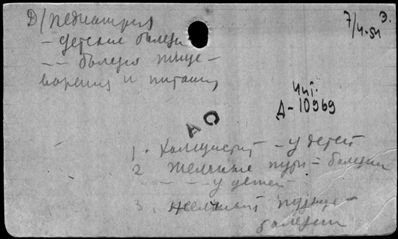 Д/Педиатрия
7/4-51 Э.
- детские болезни
- - болезн пище-
варения и питания
Чит.
Д-10969
АС
1. Холецистит - у детей
2 Желчные пути - болезни
- - - у детей
3. желчный пузырь -
болезни